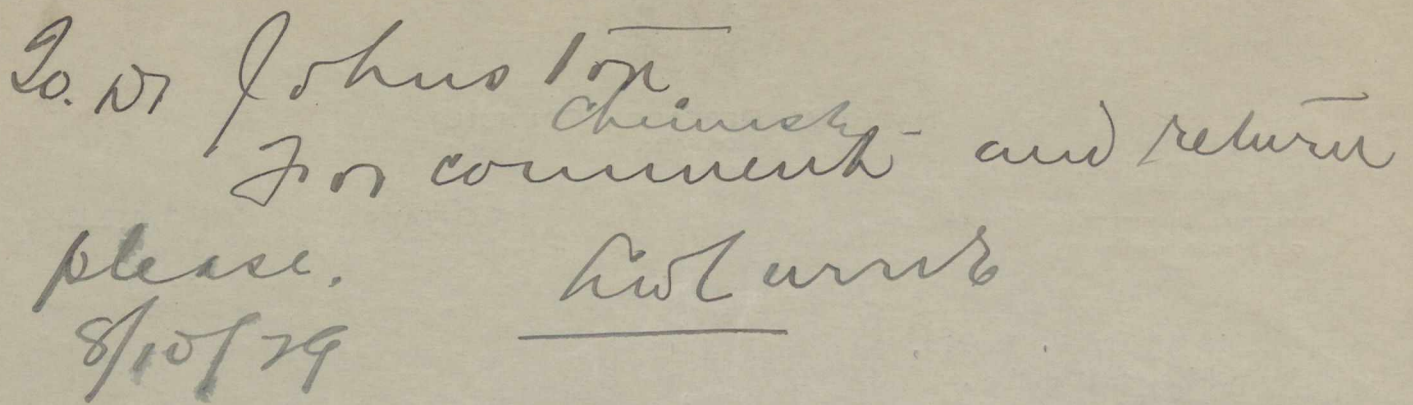 To. Dr Johnston
Chemist
For comment and return
please.
8/10/29